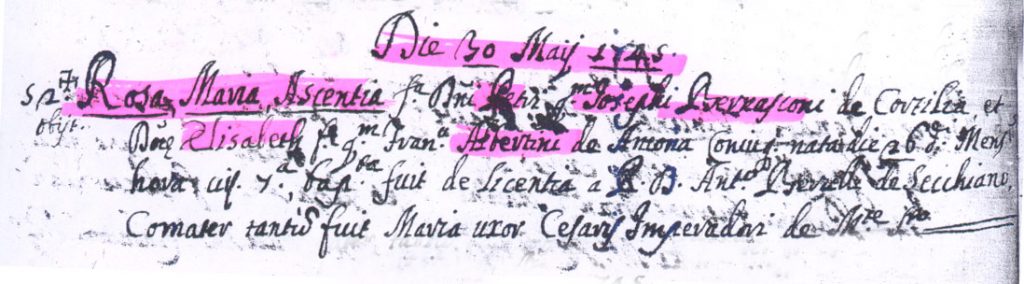 Die 30 Maij 1745.
52 Rosa, Maria, Ascentia f.a Dni Petri q.m Josephi Bernasconi de Corzilia et
obijt. Dnę Elisabeth f.ę q.m Fran.ci Albertini de Ancona Coniug. nata die 26 d. Mens
hora cir. 7.a bap.ta fuit de licentia a R. D. Ant.o de Secchiano,
Comater tantū fuit Maria uxor Cesaris Imperadori de M.te